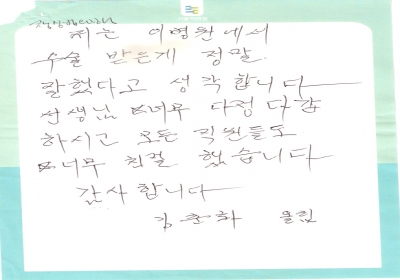 고맙습니다
저는 이병원에서
수술 받은게 정말
잘했다고 생각합니다
선생님 너무 다정다감
하시고 모든 직원들도
너무 친절 했습니다
감사합니다
김춘화 올림